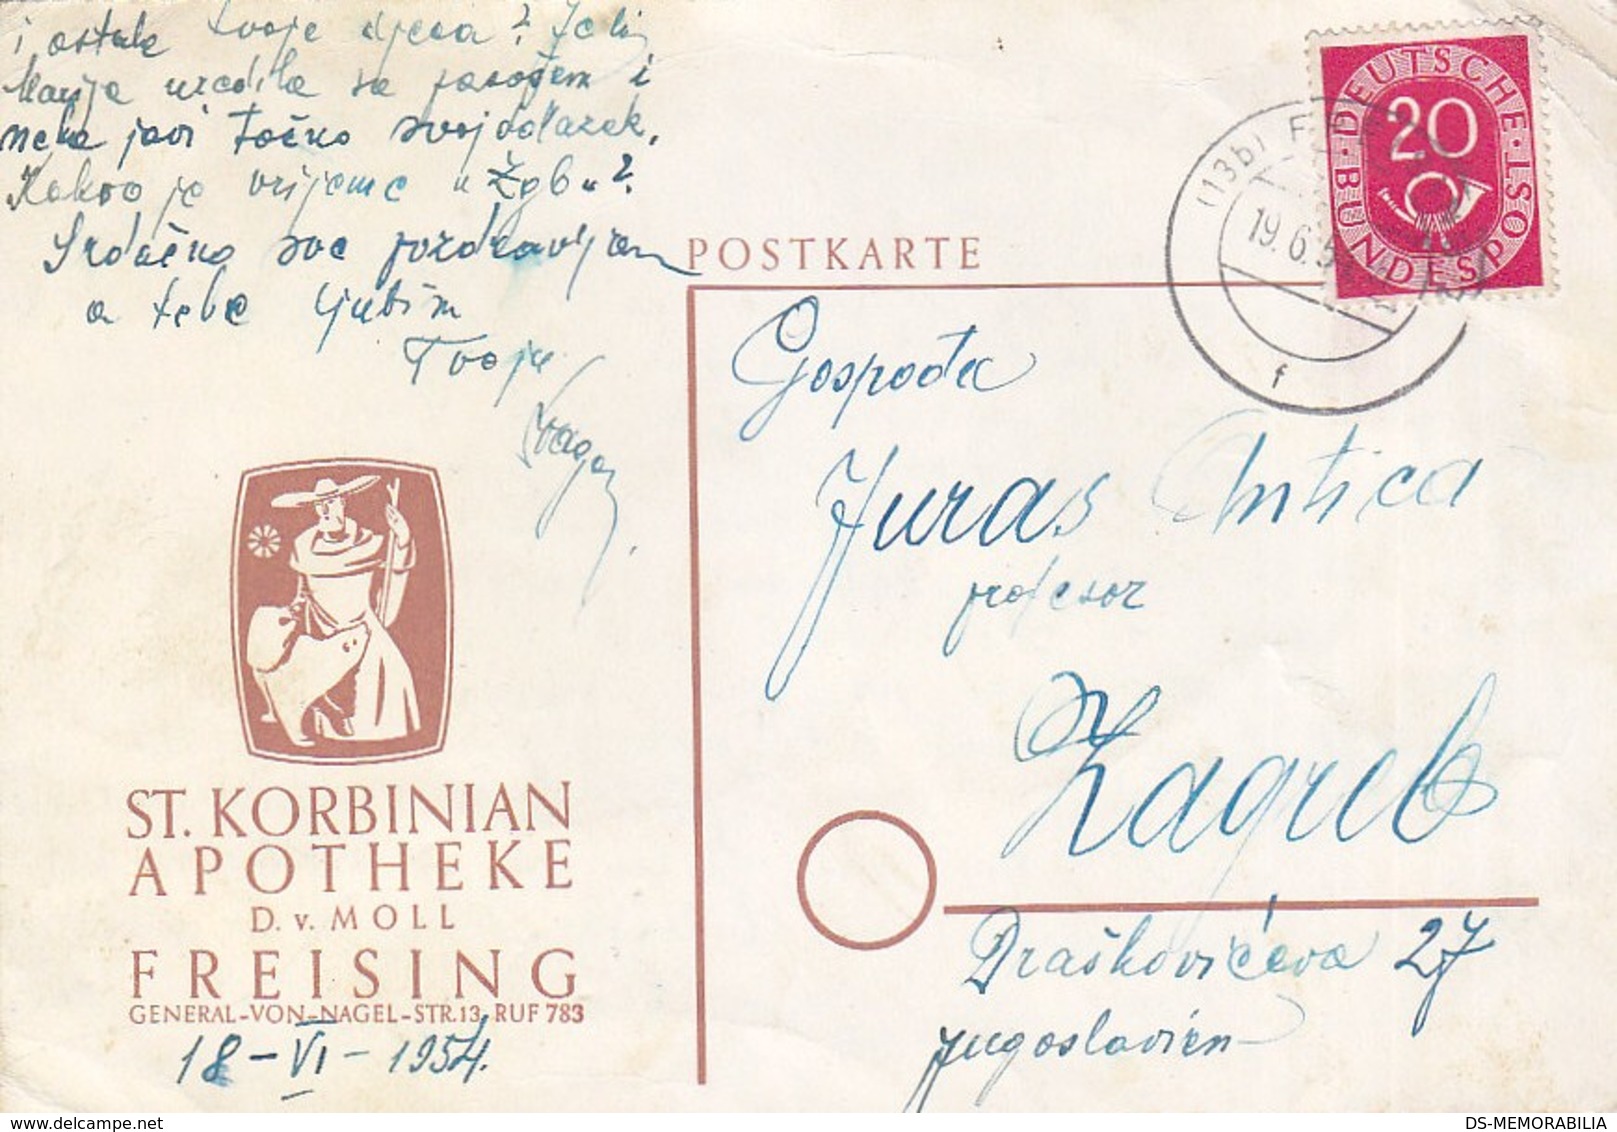 i ostale tvoje djeca? Je li
Marija uredila sa pasošem i
neka javi točno svoj odlazak.
Kakvo je vrijeme u Zgb-u?
Srdačno sve pozdravljam
a tebe ljubim
Tvoja
POSTKARTE
DEUTSCHE BUNDESPOST
20
(13b) F
19.6.54
f
Gospođa
Juras Antica
profesor
Zagreb
Draškovićeva 27
Jugoslavien
ST. KORBINIAN
APOTHEKE
D. v. MOLL
FREISING
GENERAL-VON-NAGEL-STR.13, RUF 783
18-VI-1954.
DS-MEMORABILIA